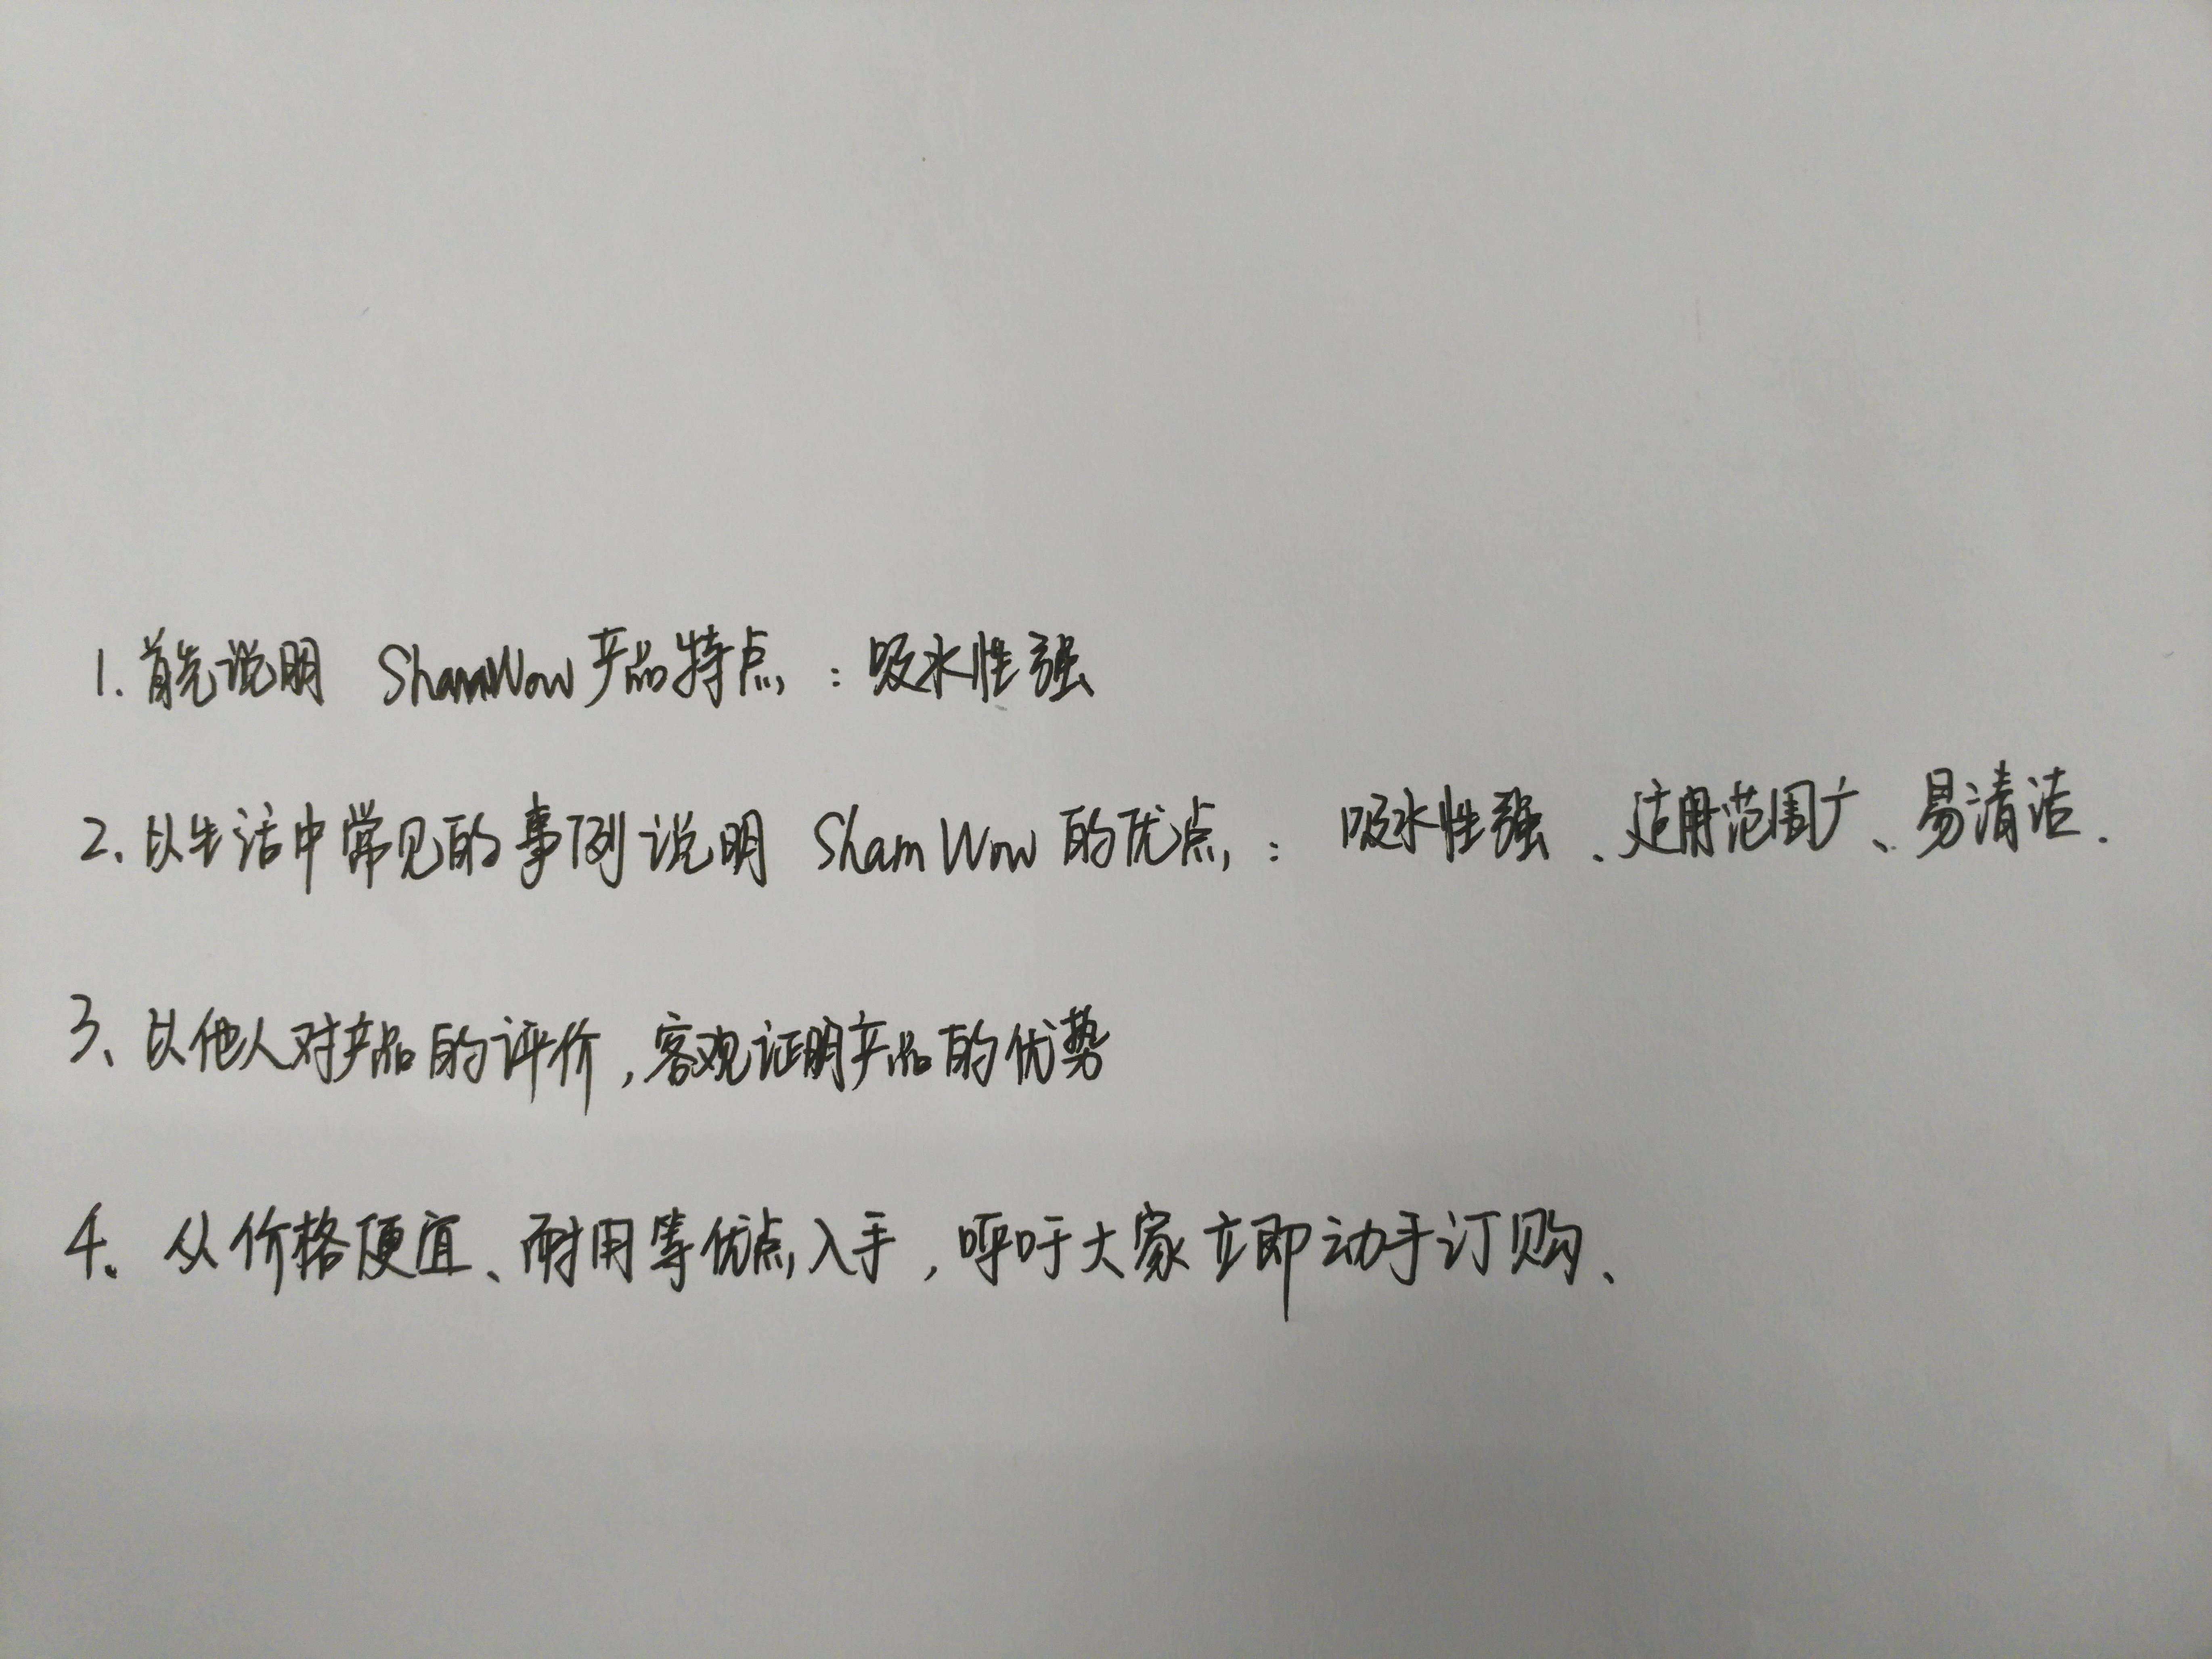 1. 首先说明 ShamWow产品特点：吸水性强
2、以生活中常见的事例说明 ShamWow 的优点：吸水性强、适用范围广、易清洁.
3、以他人对产品的评价，客观证明产品的优势
4、从价格便宜、耐用等优点入手，呼吁大家立即动手订购、